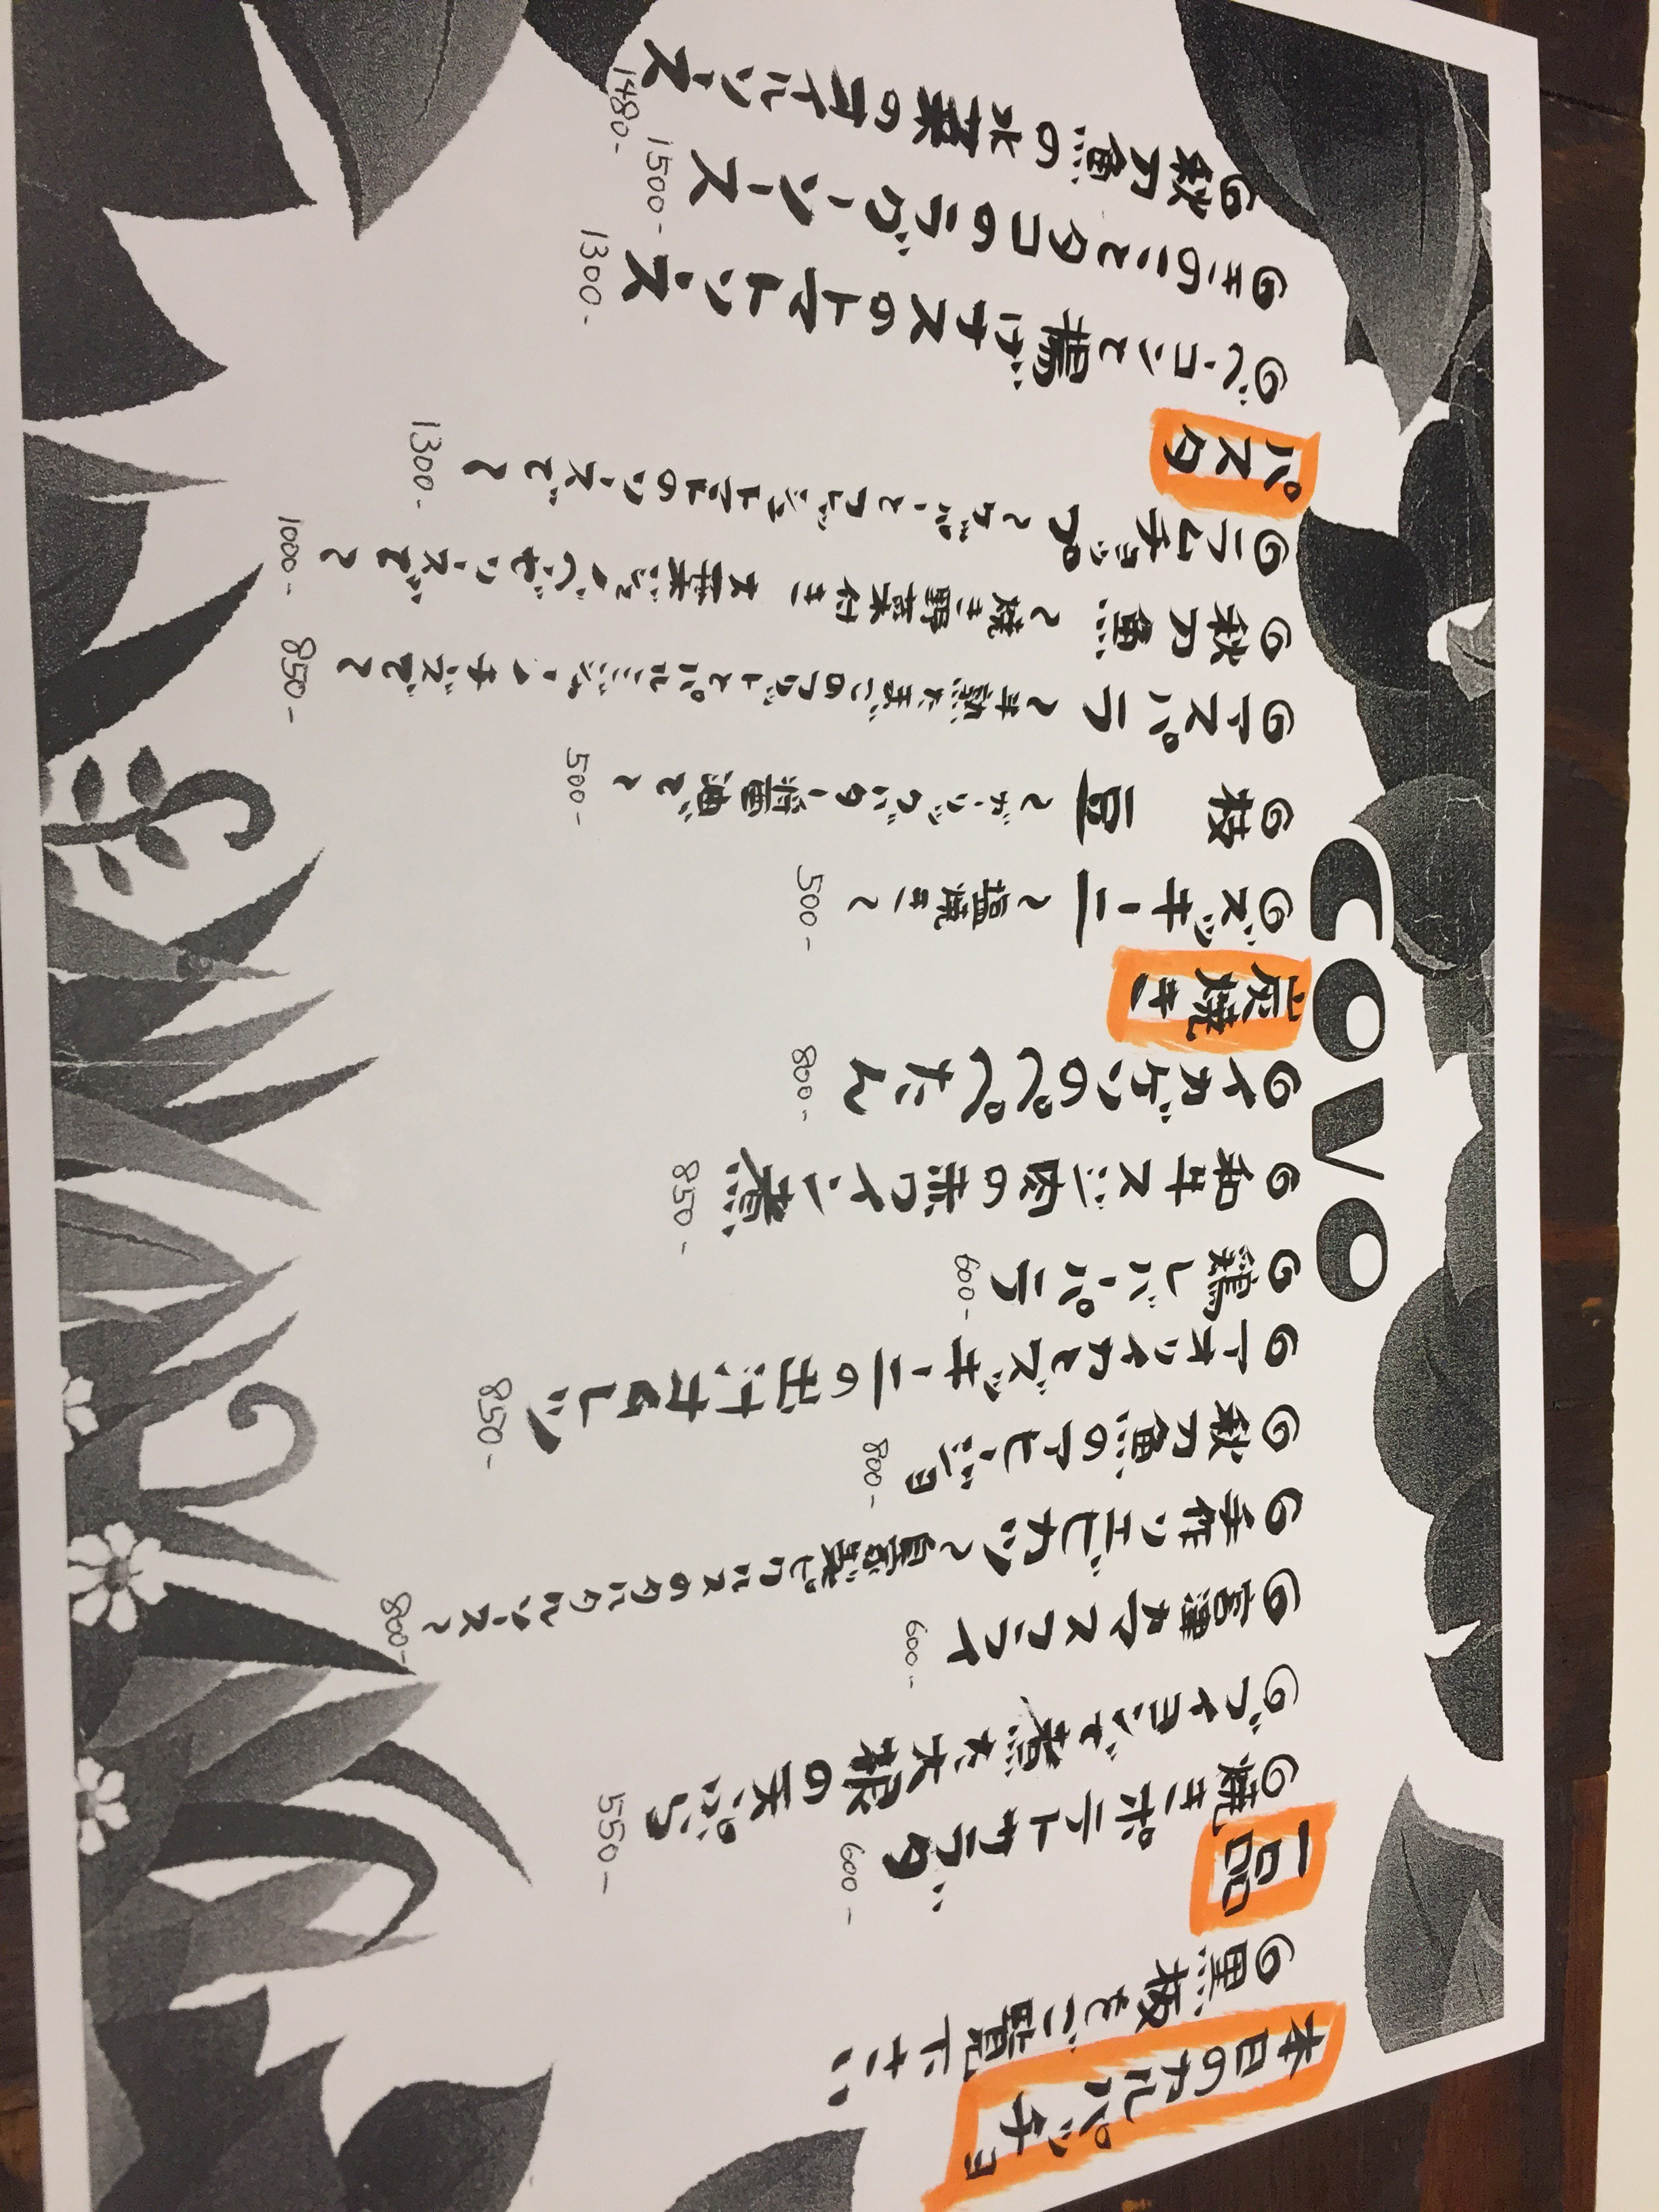 COVO
本日のカルパッチョ
◎黒板をご覧下さい
一品
◎焼きポテトサラダ 600-
◎ブイヨンで煮た大根の天ぷら 550-
◎宮津カマスフライ 600-
◎手作りエビカツ〜自家製ピクルスのタルタルソース〜 800-
◎秋刀魚のアヒージョ 800-
◎アオリイカとズッキーニの出汁オムレツ 850-
◎鶏レバーパテ 600-
◎和牛スジ肉の赤ワイン煮 850-
◎イカゲソのぺぺたん 800-
炭焼き
◎ズッキーニ〜塩焼き〜 500-
◎枝豆〜ガーリックバター醤油で〜 500-
◎アスパラ〜半熟たまごのフリットとパルミジャーノチーズで〜 850-
◎秋刀魚〜焼き野菜付き 大葉ジェノベーゼソースで〜 1000-
◎ラムチョップ〜ケッパーとフレッシュトマトのソースで〜 1300-
パスタ
◎ベーコンと揚げナスのトマトソース 1300-
◎きのことタコのラグーソース 1500-
◎秋刀魚の水菜のオイルソース 1480-